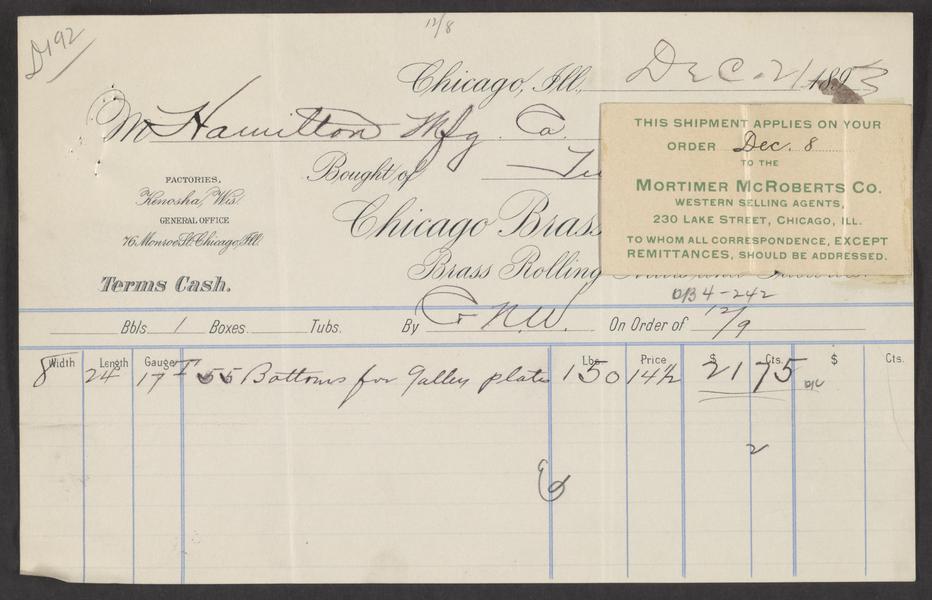 D192
12/8
Chicago, Ill., Dec. 21 1893
M Hamilton Mfg. Co.
Bought of
FACTORIES,
Kenosha, Wis.
GENERAL OFFICE
76 Monroe St. Chicago, Ill.
Chicago Brass
Brass Rolling
Terms Cash.
THIS SHIPMENT APPLIES ON YOUR
ORDER Dec. 8
TO THE
MORTIMER MCROBERTS CO.
WESTERN SELLING AGENTS,
230 LAKE STREET, CHICAGO, ILL.
TO WHOM ALL CORRESPONDENCE, EXCEPT
REMITTANCES, SHOULD BE ADDRESSED.
Bbls. 1 Boxes. Tubs. By C N.W. On Order of 12/9
Width Length Gauge Lbs. Price $ Cts. $ Cts.
8 24 17 55 Bottoms for galley plates 150 14½ 21 75
2